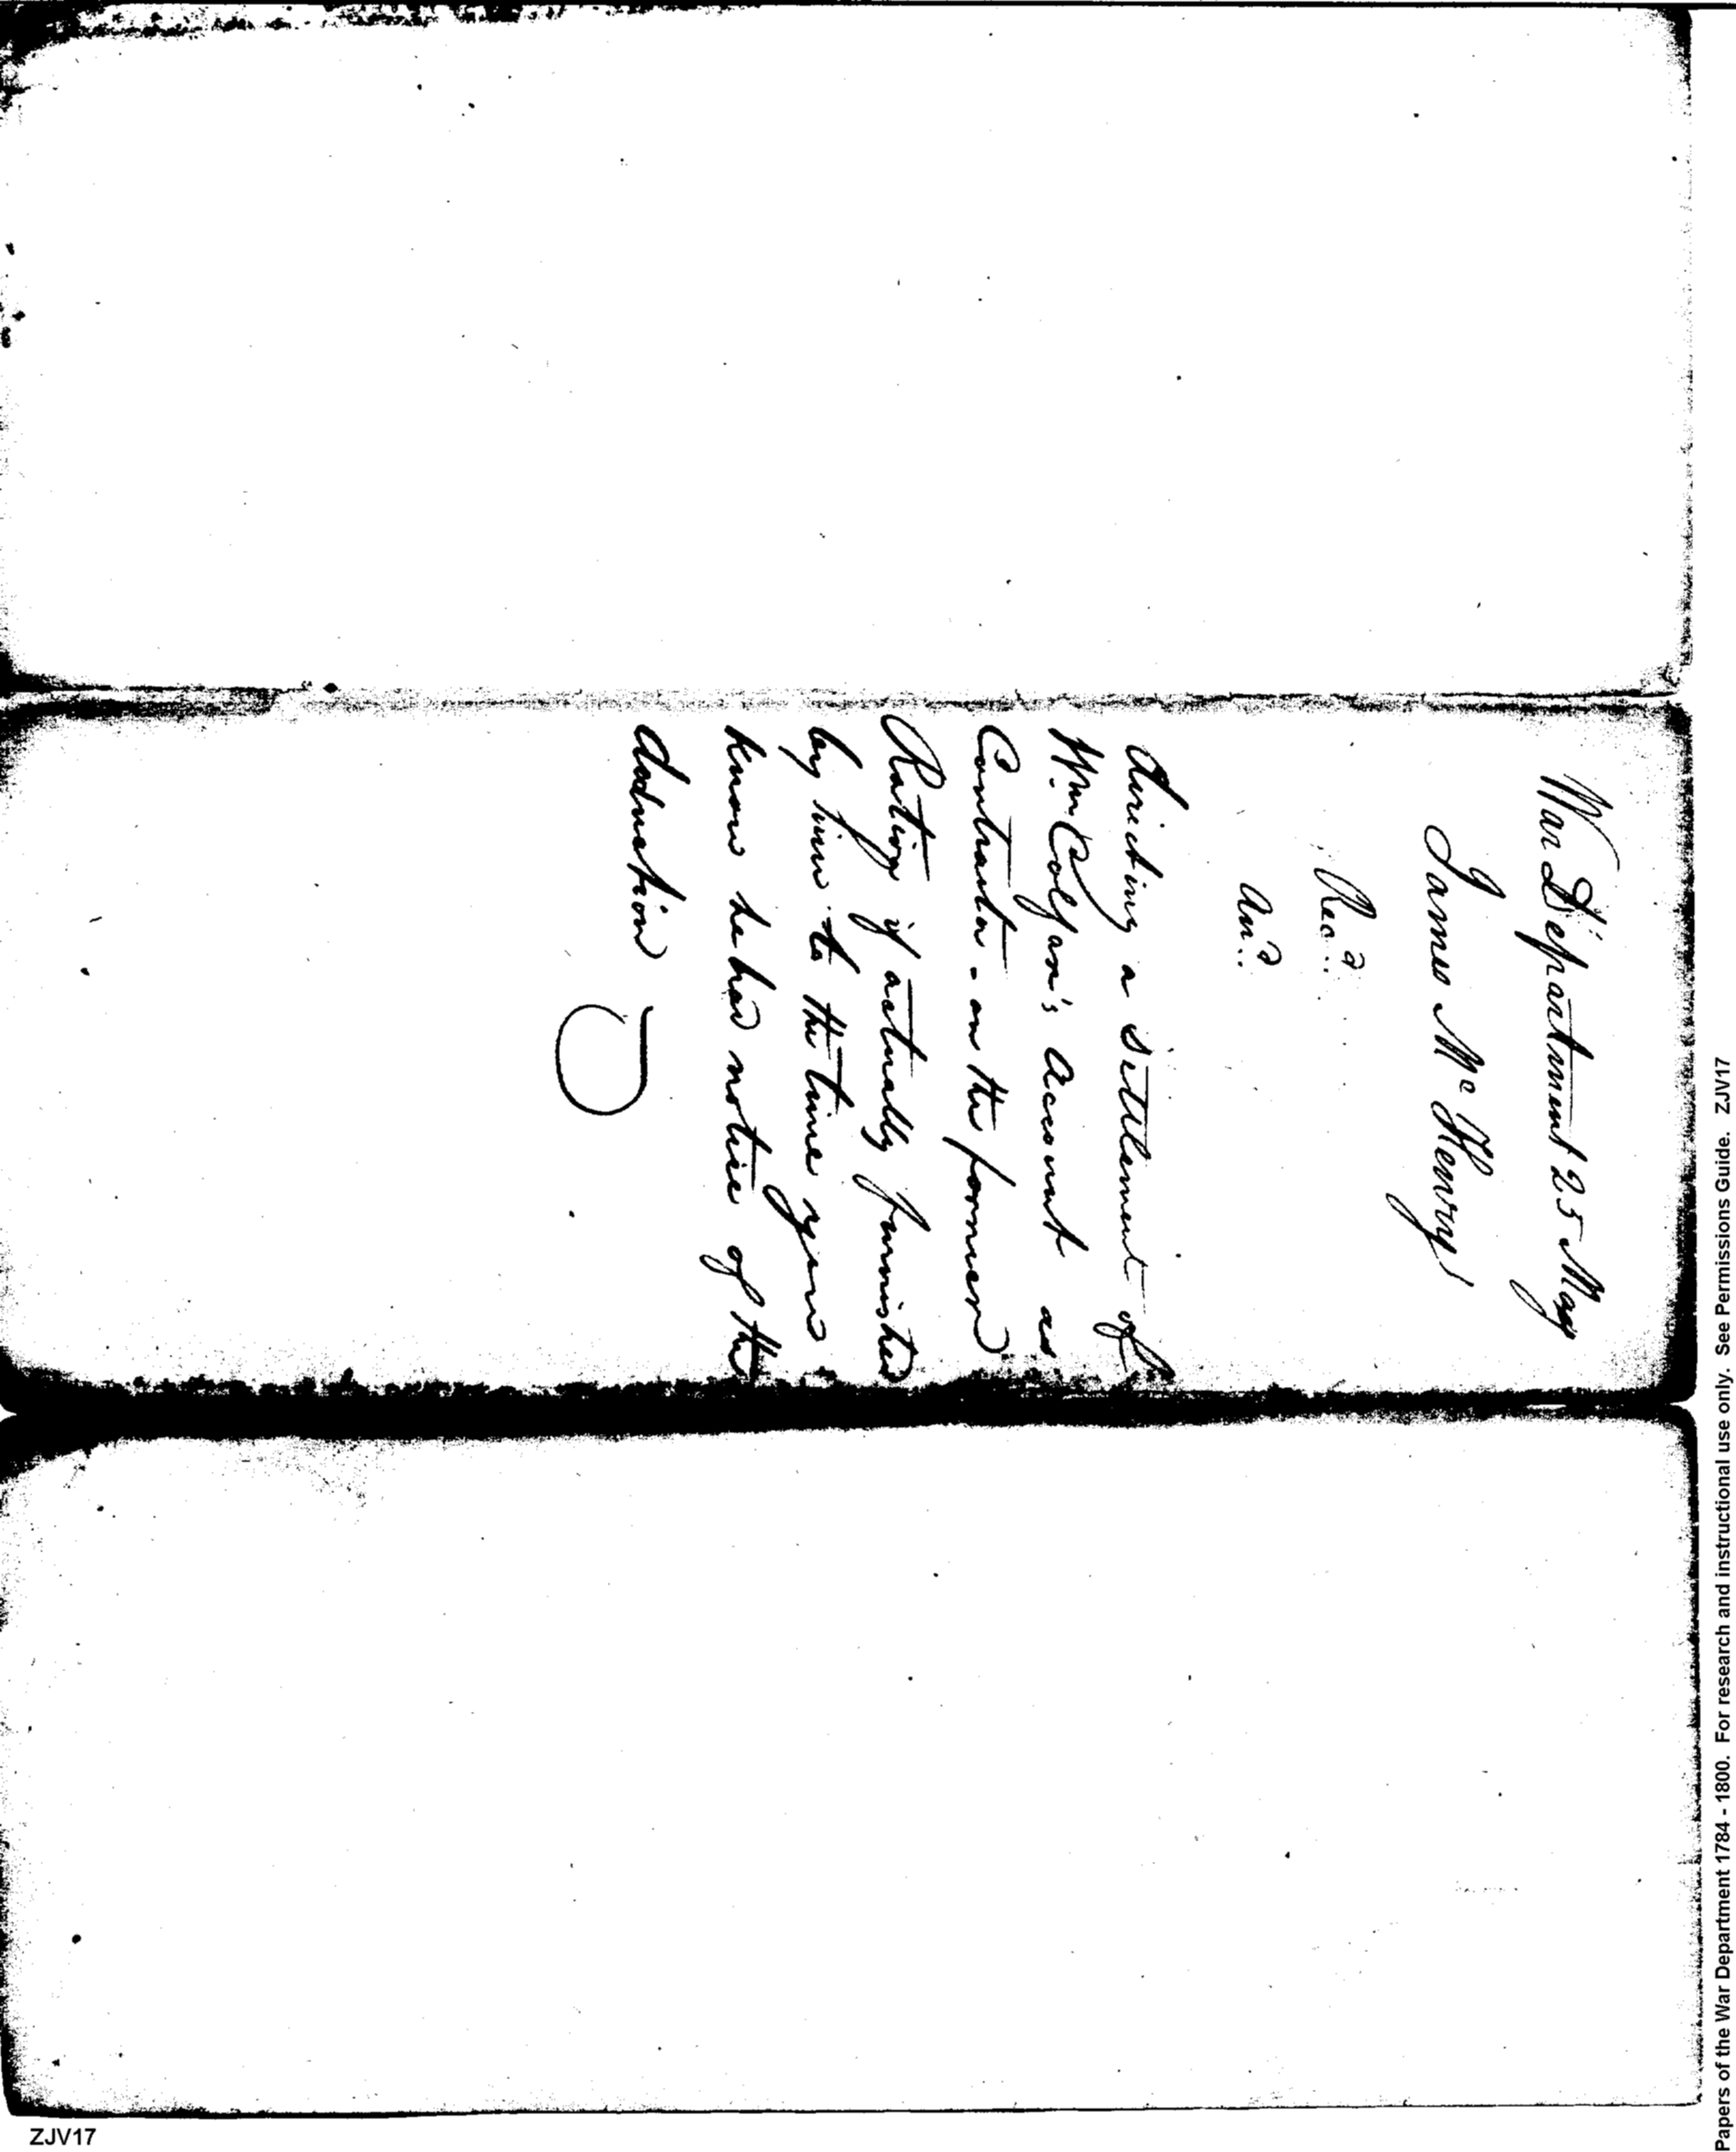 War Department 25 May
James McHenry
Recd..
And..
directing a settlement of
Wm Colfax's account as
Contractor - on the former
Ration if actually furnished
by him to the time you
know he had notice of the
deduction
Papers of the War Department 1784 - 1800. For research and instructional use only. See Permissions Guide. ZJV17
ZJV17